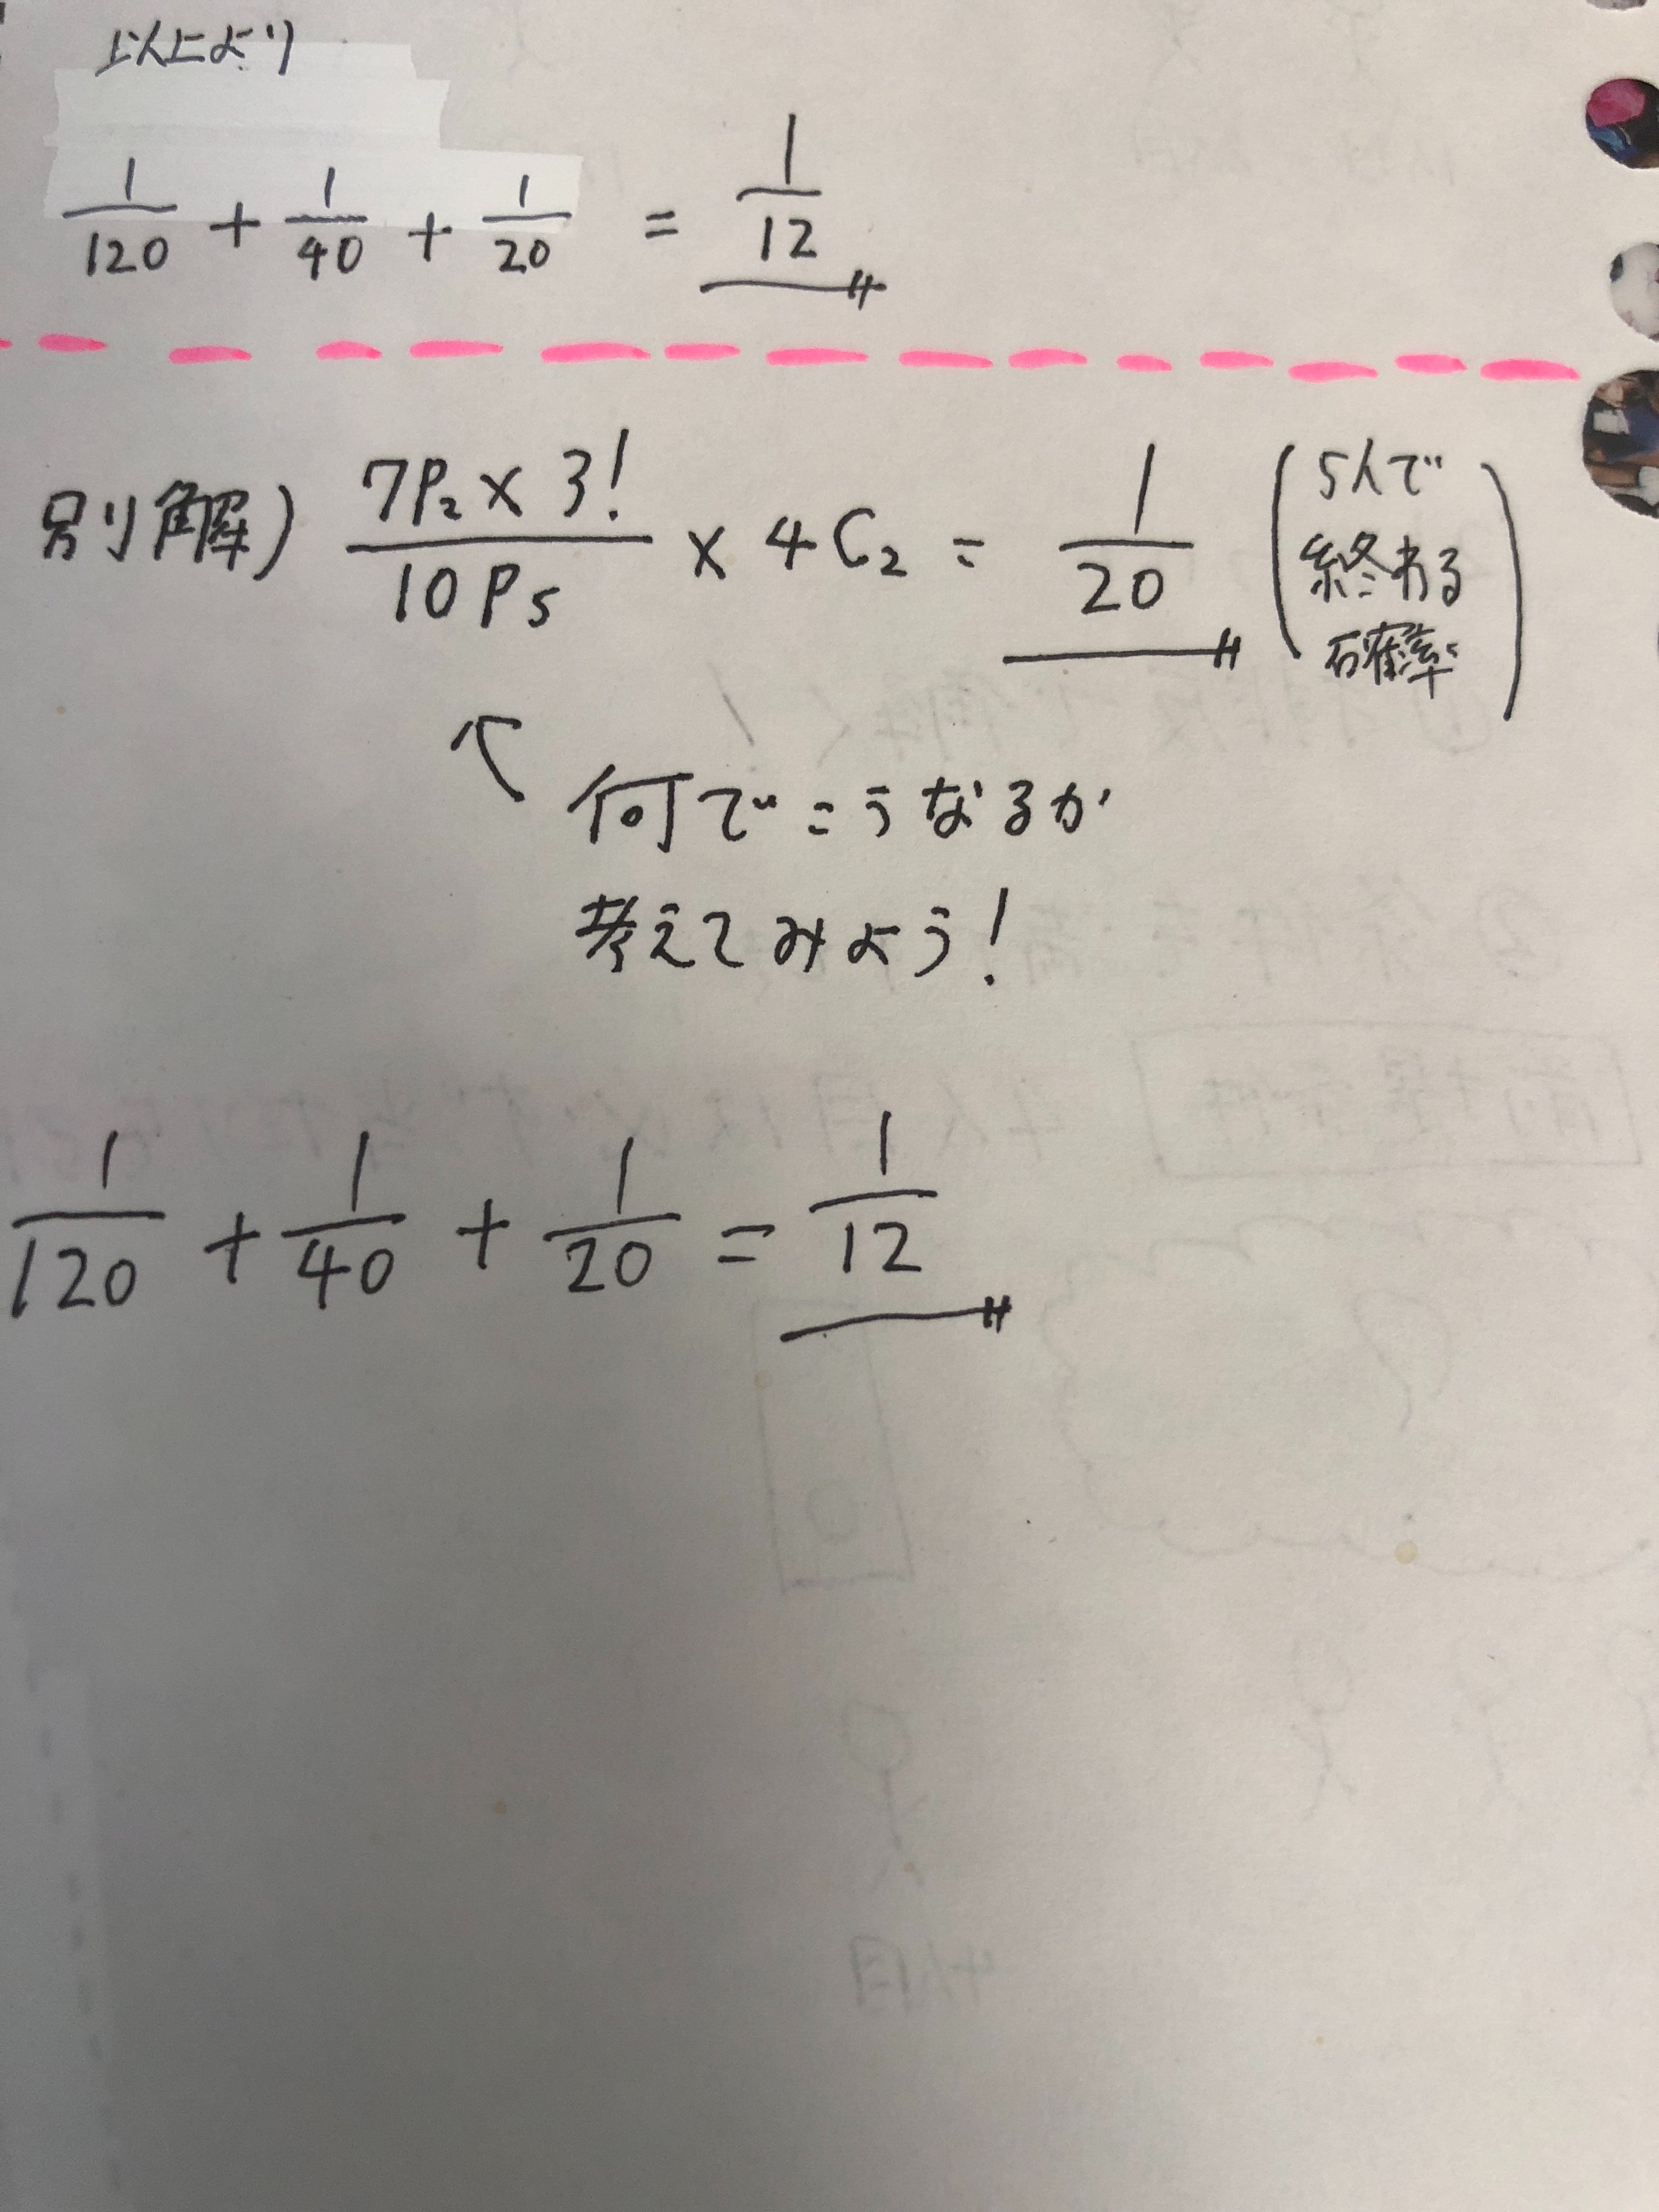 以上より
1/120 + 1/40 + 1/20 = 1/12
別解) 7P₂×3!/10P₅ × 4C₂ = 1/20 (5人で
終わる
確率)
↖ 何でこうなるか
考えてみよう!
1/120 + 1/40 + 1/20 = 1/12